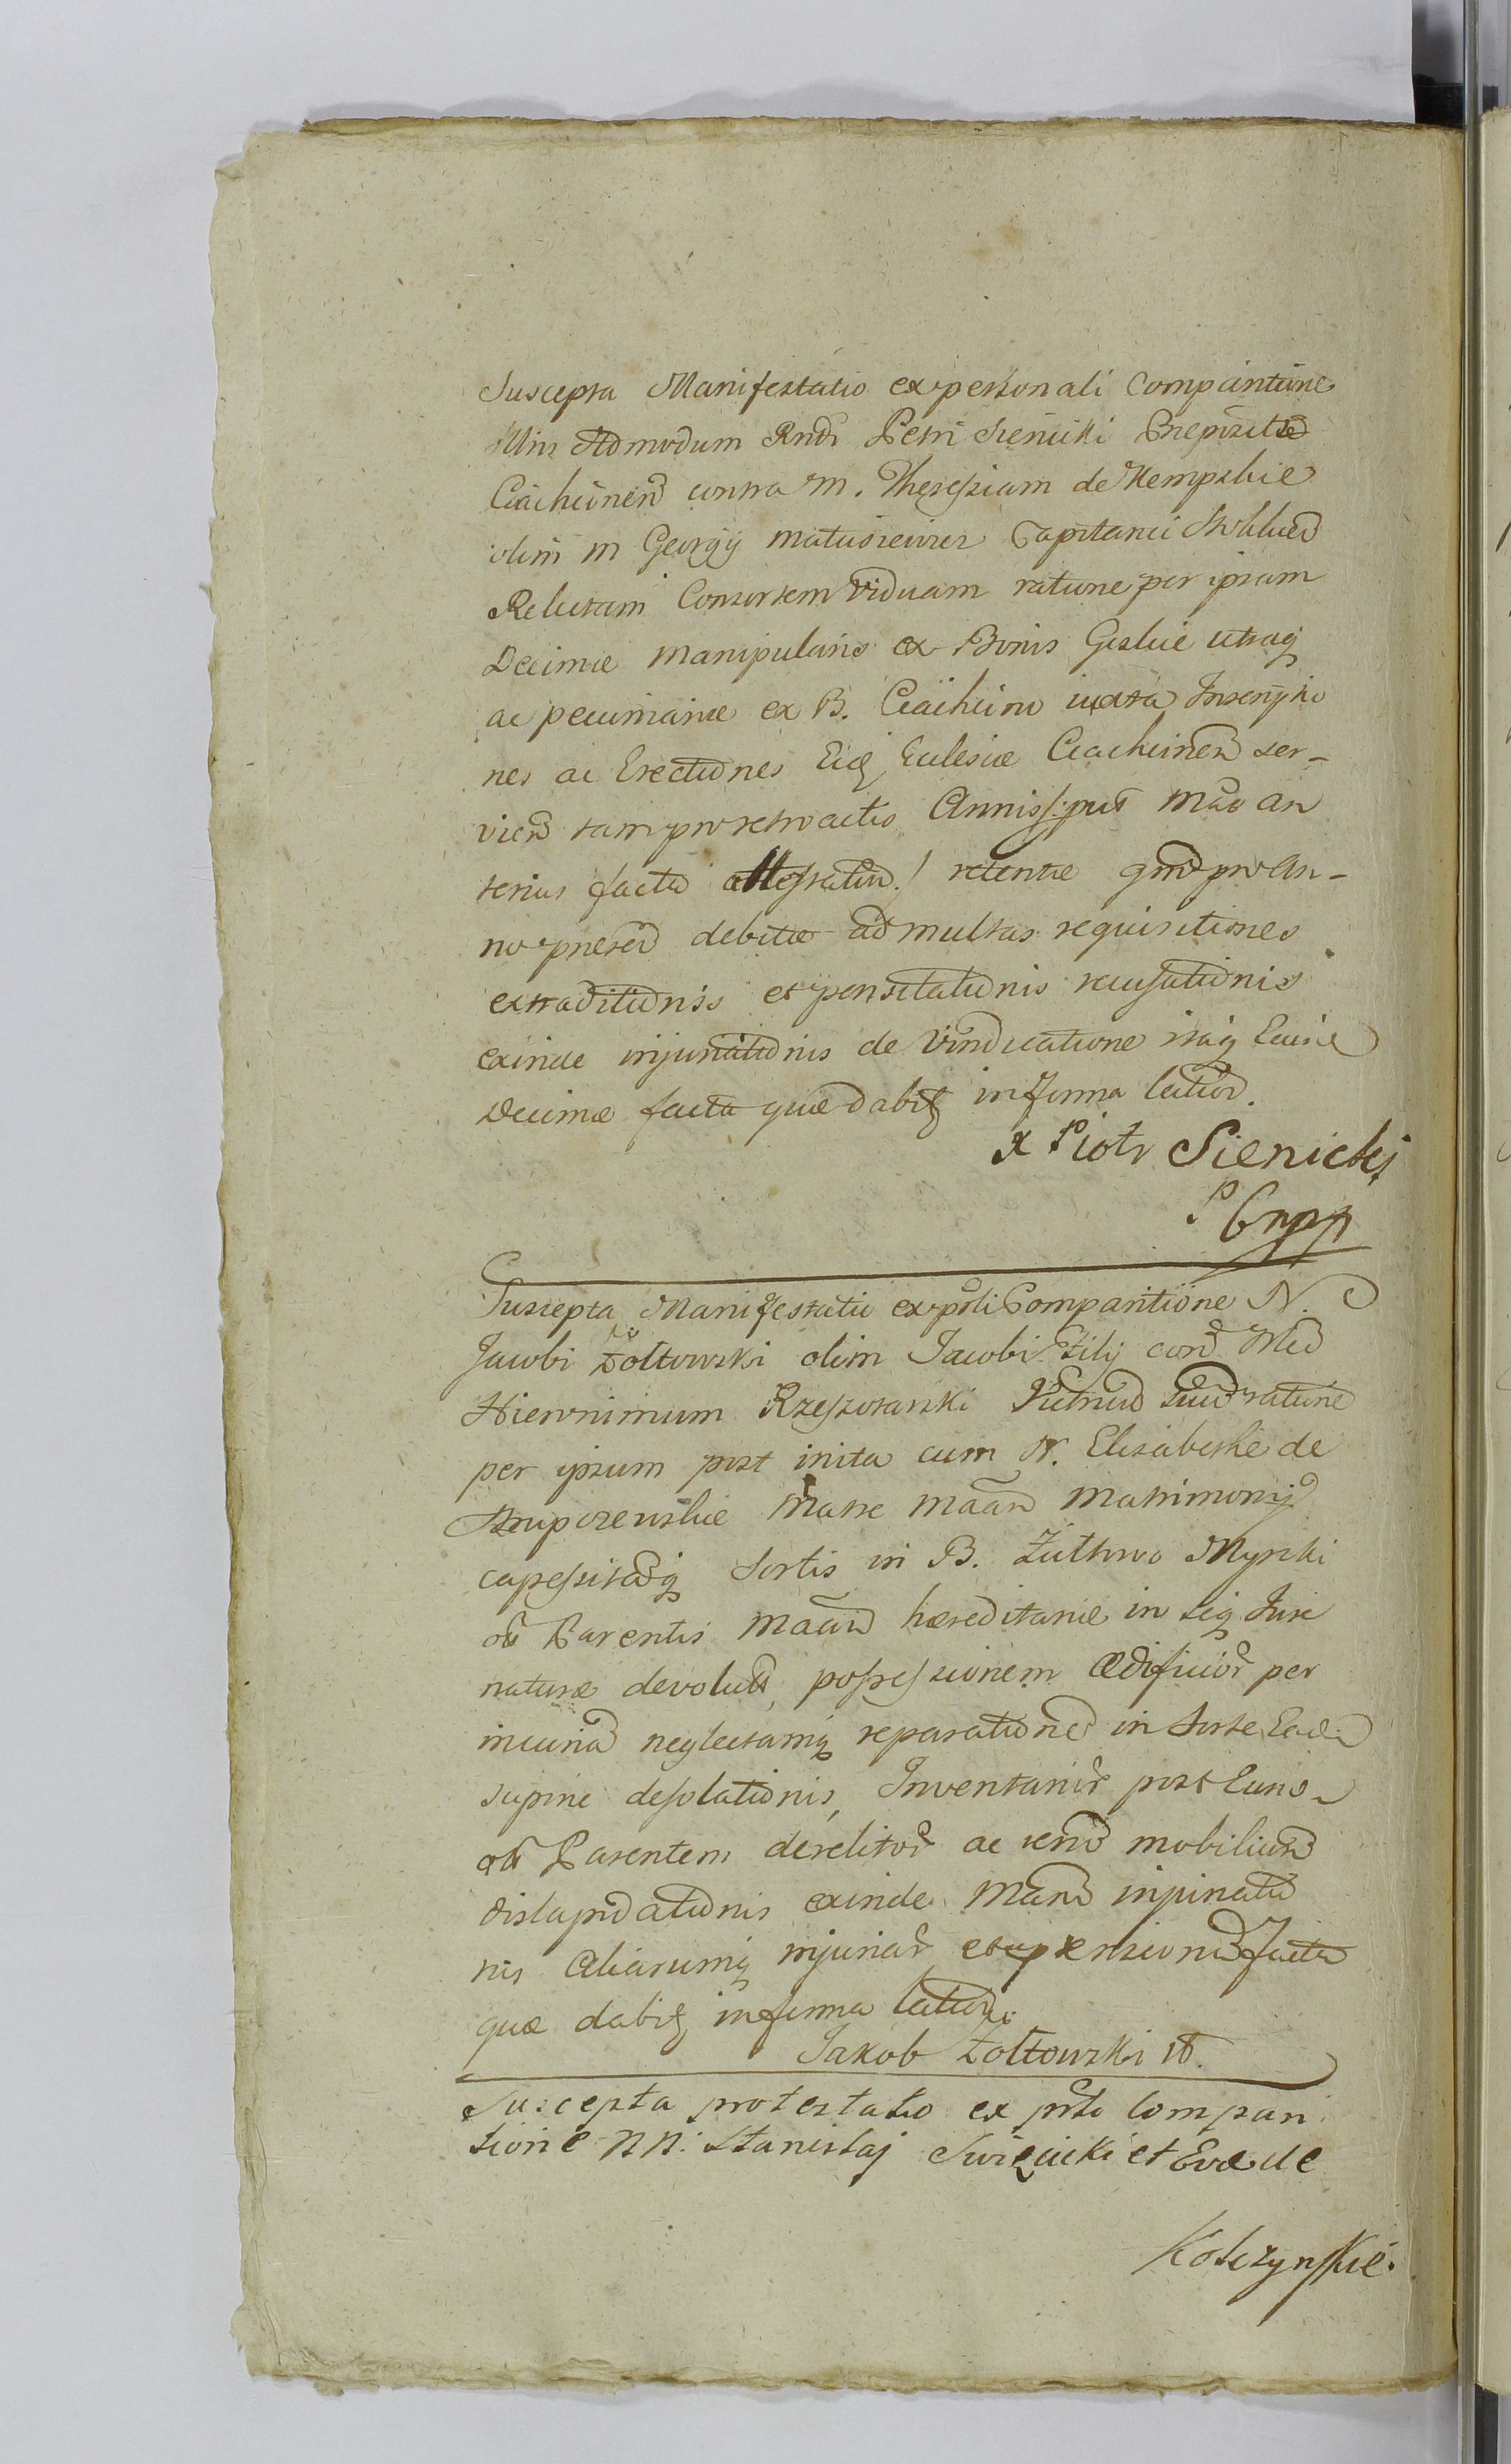 Suscepta Manifestatio ex personali Comparitione
Illris Admodum Rndi Petri Sienicki Præpositi
Ciachcinen contra M. Theressiam de Kempskie
olim M Georgij Matusiewicz Capitanei Stokliced
Relictam Consortem Viduam ratione per ipsam
Decimæ manipularis ex Bonis Geslcie utraq
ac pecuniariæ ex B. Ciachcino iuxta Inscriptio
nes ac Erectiones Eid Ecclesiæ Ciachcinen ser-
vien tam pro retroactis Annis /: put Mão an
terius facto attestatur :/ retentæ qm pro An-
no præsen debitæ ad multas requisitiones
extraditionis et pensitationis recusationis
exinde injuriationis de Vindicatione itaq Eaive
Decimæ facta quæ dabit in forma latior.
X Piotr Sienicki
P C mpp
Suscepta Manifestatio ex prli Comparitione N.
Jacobi Żółtowski olim Jacobi Filij con Md
Hieronimum Rzeszotarski Vitricu suu ratione
per ipsum post inita cum N. Elisabethe de
Strupczewskie Matre Maan Matrimonij
capessitaq Sortis in B. Żułtowo Myrzki
oli Parentis Maan hæreditariæ in seq Jure
naturæ devolut, possessionem Ædificior per
incuria neglectamq reparatione in Sorte Ead
supine desolationis, Inventarior post Eund
oli Parentem derelitor ac reru mobilium
dislapidationis exinde Man injuriatio
nis Aliarumq injuriar et expensionu facta
quæ dabit in forma latiori.
Jakob Żołtowski
Suscepta protestatio ex prli Compari
tione NN: Stanislaj Swięcicki et Evæ de
Kolczynskie.